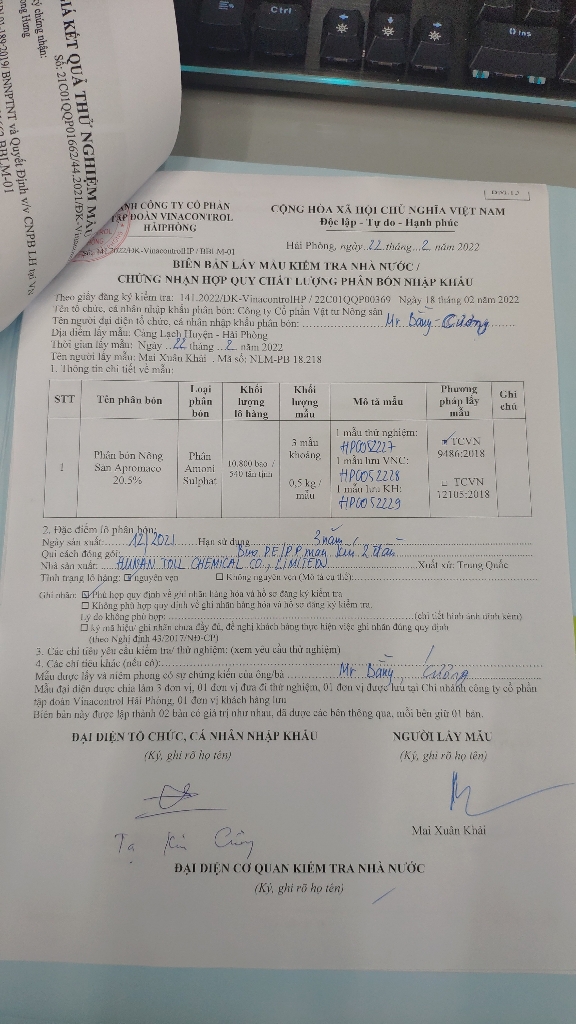 Ctrl
Ins
GIÁ KẾT QUẢ THỬ NGHIỆM MẪU
Số: 21C01QQP01662/44.2021/ĐK-Vina
chứng nhận:
BNNPTNT và Quyết Định v/v CNPB LH tại
BBLM-01
CÔNG TY CỔ PHẦN
TẬP ĐOÀN VINACONTROL
HẢI PHÒNG
Số: 141.2022/ĐK-VinacontrolHP / BBLM-01
CỘNG HÒA XÃ HỘI CHỦ NGHĨA VIỆT NAM
Độc lập - Tự do - Hạnh phúc
Hải Phòng, ngày 22 tháng 2 năm 2022
BIÊN BẢN LẤY MẪU KIỂM TRA NHÀ NƯỚC /
CHỨNG NHẬN HỢP QUY CHẤT LƯỢNG PHÂN BÓN NHẬP KHẨU
Theo giấy đăng ký kiểm tra: 141.2022/ĐK-VinacontrolHP / 22C01QQP00369 Ngày 18 tháng 02 năm 2022
Tên tổ chức, cá nhân nhập khẩu phân bón: Công ty Cổ phần Vật tư Nông sản
Tên người đại diện tổ chức, cá nhân nhập khẩu phân bón: Mr. Cường
Địa điểm lấy mẫu: Cảng Lạch Huyện - Hải Phòng
Thời gian lấy mẫu: Ngày 22 tháng 2 năm 2022
Tên người lấy mẫu: Mai Xuân Khải . Mã số: NLM-PB 18.218
1. Thông tin chi tiết về mẫu:
STT | Tên phân bón | Loại phân bón | Khối lượng lô hàng | Khối lượng mẫu | Mô tả mẫu | Phương pháp lấy mẫu | Ghi chú
1 | Phân bón Nông San Apromaco 20.5% | Phân Amoni Sulphat | 10.800 bao / 540 tấn tịnh | 3 mẫu khoảng 0,5 kg / mẫu | 1 mẫu thử nghiệm: HP0052227 1 mẫu lưu VNC: HP0052228 1 mẫu lưu KH: HP0052229 | ☑ TCVN 9486:2018 □ TCVN 12105:2018
2. Đặc điểm lô phân bón:
Ngày sản xuất: 12/2021 Hạn sử dụng 3 năm
Qui cách đóng gói: Bao PE/PP
Nhà sản xuất: HUNAN TOLL CHEMICAL CO., LIMITED Xuất xứ: Trung Quốc
Tình trạng lô hàng: ☑ nguyên vẹn □ Không nguyên vẹn (Mô tả cụ thể):
Ghi nhãn: ☑ Phù hợp quy định về ghi nhãn hàng hóa và hồ sơ đăng ký kiểm tra
□ Không phù hợp quy định về ghi nhãn hàng hóa và hồ sơ đăng ký kiểm tra.
Lý do không phù hợp: (chi tiết hình ảnh đính kèm)
□ ký mã hiệu/ ghi nhãn chưa đầy đủ, đề nghị khách hàng thực hiện việc ghi nhãn đúng quy định
(theo Nghị định 43/2017/NĐ-CP)
3. Các chỉ tiêu yêu cầu kiểm tra/ thử nghiệm: (xem yêu cầu thử nghiệm)
4. Các chỉ tiêu khác (nếu có):
Mẫu được lấy và niêm phong có sự chứng kiến của ông/bà Mr. Cường
Mẫu đại diện được chia làm 3 đơn vị, 01 đơn vị đưa đi thử nghiệm, 01 đơn vị được lưu tại Chi nhánh công ty cổ phần
tập đoàn Vinacontrol Hải Phòng, 01 đơn vị khách hàng lưu
Biên bản này được lập thành 02 bản có giá trị như nhau, đã được các bên thông qua, mỗi bên giữ 01 bản.
ĐẠI DIỆN TỔ CHỨC, CÁ NHÂN NHẬP KHẨU
(Ký, ghi rõ họ tên)
NGƯỜI LẤY MẪU
(Ký, ghi rõ họ tên)
Mai Xuân Khải
ĐẠI DIỆN CƠ QUAN KIỂM TRA NHÀ NƯỚC
(Ký, ghi rõ họ tên)